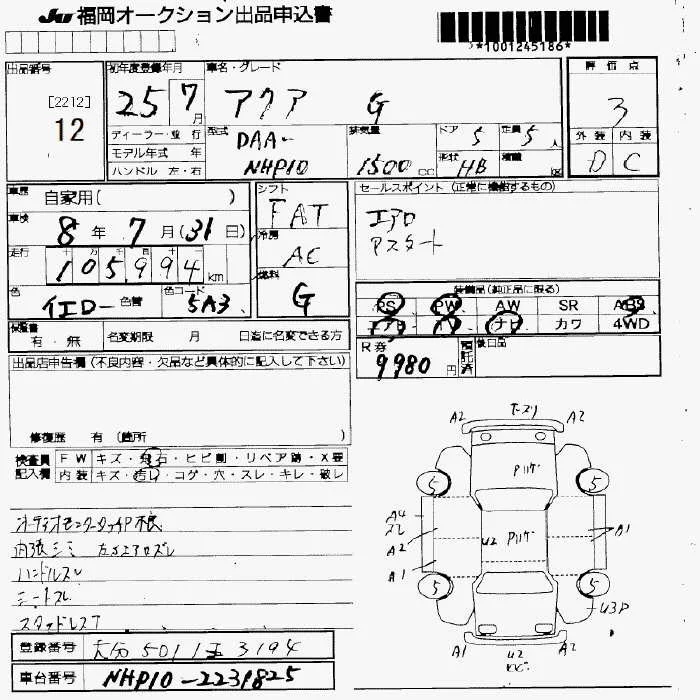 JU 福岡オークション出品申込書
*1001245186*
出品番号
[2212]
12
初年度登録年月
25 7月
車名・グレード
アクア G
評価点
3
外装 内装
D C
ディーラー・並行
モデル年式 年
ハンドル 左・右
型式
DAA-
NHP10
排気量
1500cc
ドア
5
定員
5人
形状
HB
積載
車歴
自家用( )
車検
8年 7月(31日)
走行
105,994km
色
イエロー 色替
色コード
5A3
シフト
FAT
冷房
AC
燃料
G
セールスポイント(正常に機能するもの)
エアロ
アスタート
装備品(純正品に限る)
PS PW AW SR ABS
エアB TV ナビ カワ 4WD
保証書
有・無
名変期限 月 日迄に名変できる方
R券
9980円
預託済
後日品
出品店申告欄(不良内容・欠品など具体的に記入して下さい)
修復歴 有(箇所 )
検査員記入欄
FW キズ・飛石・ヒビ割・リペア跡・X要
内装 キズ・汚レ・コゲ・穴・スレ・キレ・破レ
オーディオモニタータッチP不良
内張シミ 左Sエアロズレ
ハンドルスレ
シートスレ
スタッドレスT
A2 A2
5 5
A4
スレ
A2
A1
U2
A1
5 5
U3P
A1 U2 A2
登録番号
大分 501 3194
車台番号
NHP10-2231825